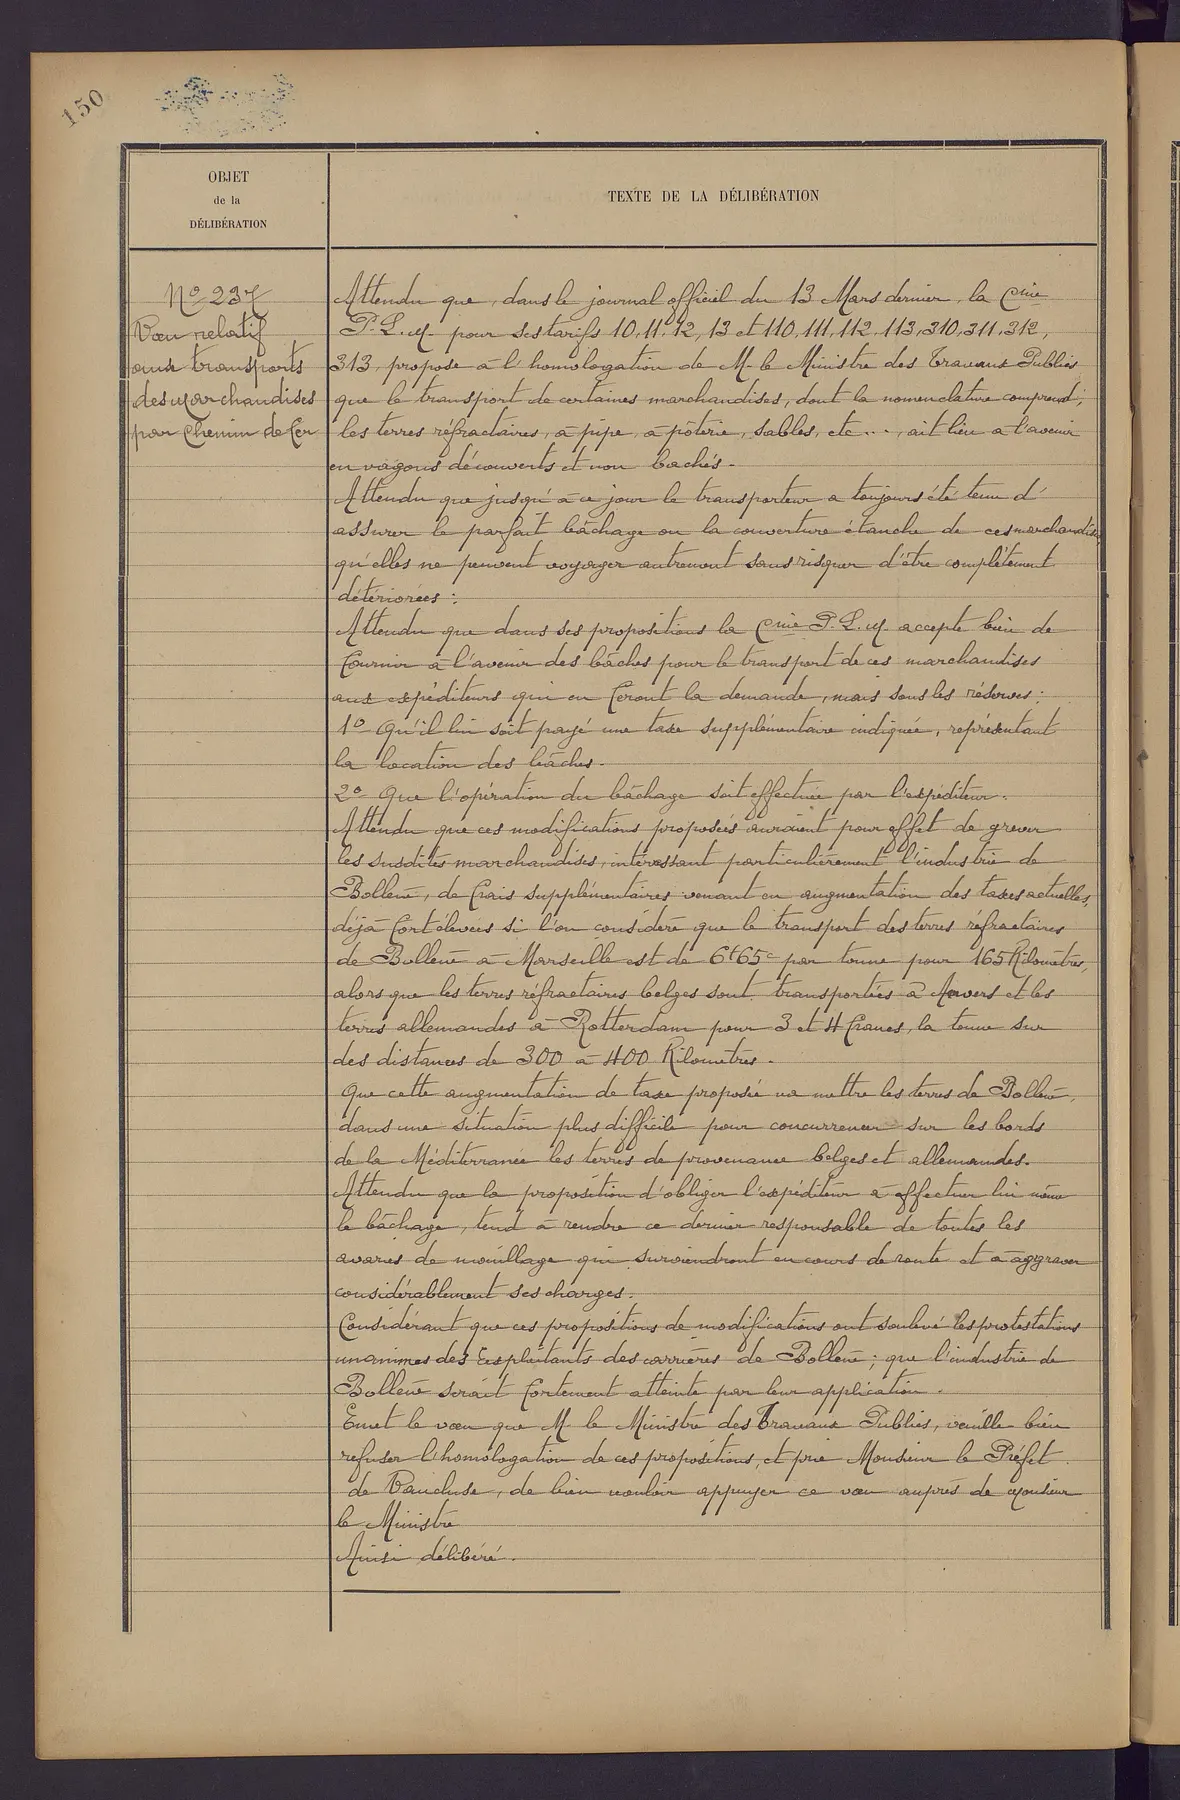 150
OBJET
de la
DÉLIBÉRATION
TEXTE DE LA DÉLIBÉRATION
Nº 237
Vœu relatif
aux transports
des Marchandises
par Chemin de Fer
Attendu que, dans le journal officiel du 13 Mars dernier, la Cnie
P. L. M. pour ses tarifs 10, 11, 12, 13 et 110, 111, 112, 113, 310, 311, 312,
313, propose à l'homologation de M. le Ministre des Travaux Publics
que le transport de certaines marchandises, dont la nomenclature comprend,
les terres réfractaires, à pipe, à pôterie, sables, etc..., ait lieu à l'avenir
en vagons découverts et non bachés.
Attendu que jusqu'à ce jour le transporteur a toujours été tenu d'
assurer le parfait bâchage ou la couverture étanche de ces marchandises,
qu'elles ne peuvent voyager autrement sans risquer d'être complètement
détériorées:
Attendu que dans ses propositions la Cnie P. L. M. accepte bien de
fournir à l'avenir des bâches pour le transport de ces marchandises
aux expéditeurs qui en feront la demande, mais sous les réserves:
1º Qu'il lui soit payé une taxe supplémentaire indiquée, représentant
la location des bâches.
2º Que l'opération du bâchage soit effectuée par l'expéditeur.
Attendu que ces modifications proposées auraient pour effet de grever
les susdites marchandises, intéressant particulièrement l'industrie de
Bollène, de frais supplémentaires venant en augmentation des taxes actuelles,
déjà fort élevées si l'on considère que le transport des terres réfractaires
de Bollène à Marseille est de 6f65c par tonne pour 165 Kilomètres,
alors que les terres réfractaires belges sont transportées à Anvers et les
terres allemandes à Rotterdam pour 3 et 4 francs, la tonne sur
des distances de 300 à 400 Kilomètres.
Que cette augmentation de taxe proposée va mettre les terres de Bollène,
dans une situation plus difficile pour concurrencer sur les bords
de la Méditerranée les terres de provenance belges et allemandes.
Attendu que la proposition d'obliger l'expéditeur à effectuer lui même
le bâchage, tend à rendre ce dernier responsable de toutes les
avaries de mouillage qui surviendront en cours de route et à aggraver
considérablement ses charges.
Considérant que ces propositions de modifications ont soulevé les protestations
unanimes des Exploitants des carrières de Bollène; que l'industrie de
Bollène serait fortement atteinte par leur application.
Emet le vœu que M. le Ministre des Travaux Publics, veuille bien
refuser l'homologation de ces propositions, et prie Monsieur le Préfet
de Vaucluse, de bien vouloir appuyer ce vœu auprès de Monsieur
le Ministre
Ainsi délibéré.